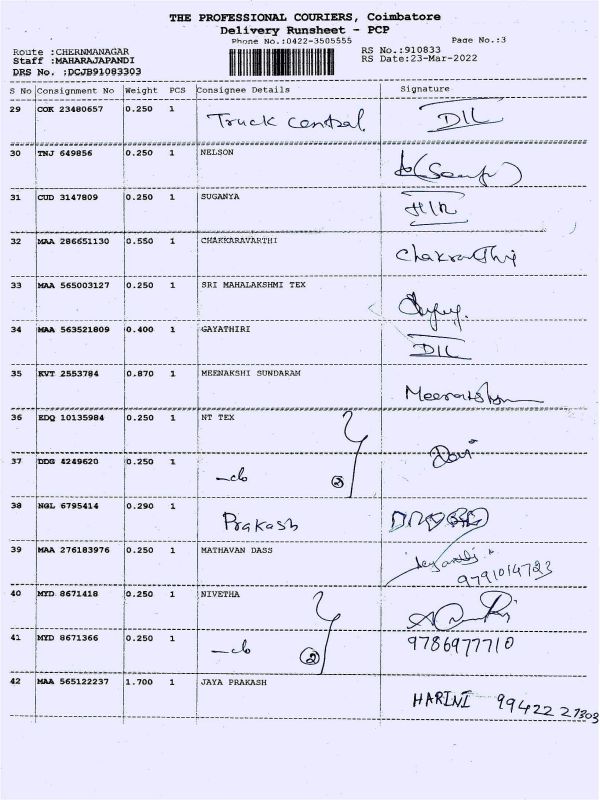 THE PROFESSIONAL COURIERS, Coimbatore
Delivery Runsheet - PCP
Phone No.:0422-3505555 Page No.:3
Route :CHERNMANAGAR RS No.:910833
Staff :MAHARAJAPANDI RS Date:23-Mar-2022
DRS No. :DCJB91083303
S No Consignment No Weight PCS Consignee Details Signature
29 COK 23480657 0.250 1 Truck central DIL
30 TNJ 649856 0.250 1 NELSON
31 CUD 3147809 0.250 1 SUGANYA
32 MAA 286651130 0.550 1 CHAKKARAVARTHI
33 MAA 565003127 0.250 1 SRI MAHALAKSHMI TEX
34 MAA 563521809 0.400 1 GAYATHIRI DIL
35 KVT 2553784 0.870 1 MEENAKSHI SUNDARAM
36 EDQ 10135984 0.250 1 NT TEX
37 DDG 4249620 0.250 1 2
38 NGL 6795414 0.290 1 Prakash
39 MAA 276183976 0.250 1 MATHAVAN DASS 9791014723
40 MYD 8671418 0.250 1 NIVETHA
41 MYD 8671366 0.250 1 2 9786977710
42 MAA 565122237 1.700 1 JAYA PRAKASH HARINI 99422 27303